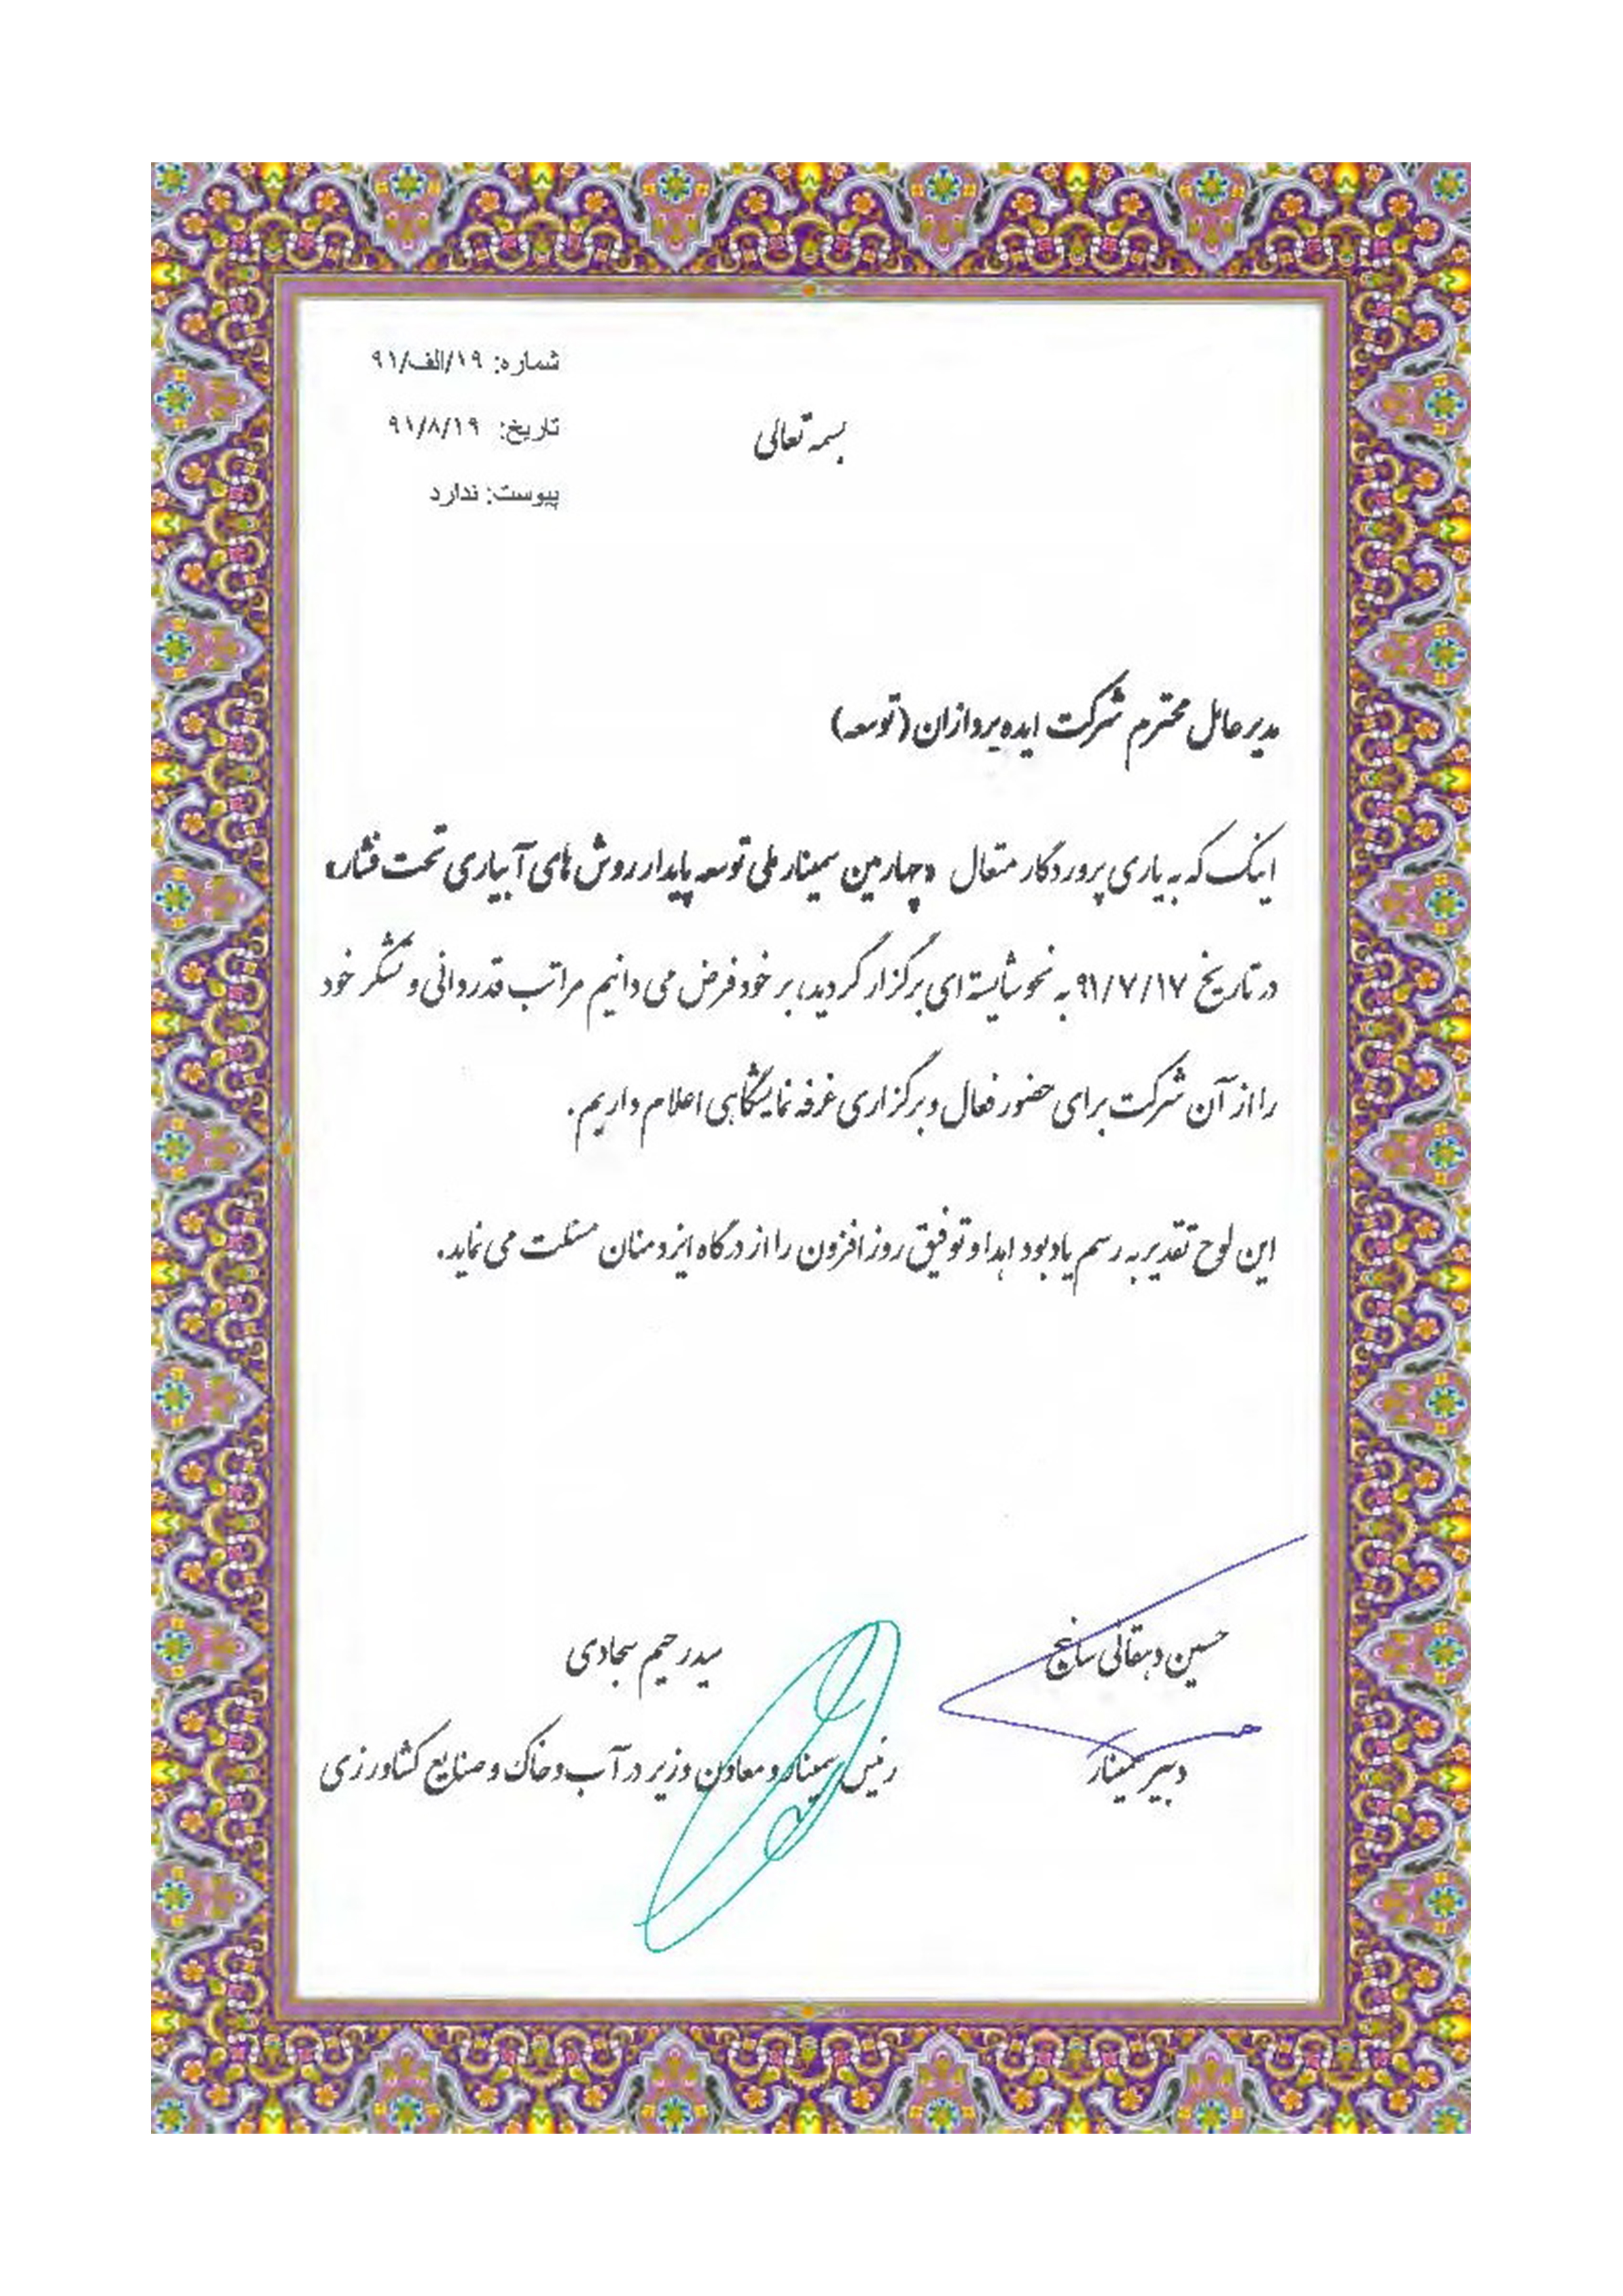 شماره: ۱۹/الف/۹۱
تاریخ: ۹۱/۸/۱۹
پیوست: ندارد
بسمه تعالی
مدیر عامل محترم شرکت ایده پردازان (توسعه)
اینک که به یاری پروردگار متعال «چهارمین سمینار ملی توسعه پایدار روش های آبیاری تحت فشار»
در تاریخ ۹۱/۷/۱۷ به نحو شایسته ای برگزار گردید، بر خود فرض می دانیم مراتب قدردانی و تشکر خود
را از آن شرکت برای حضور فعال و برگزاری غرفه نمایشگاهی اعلام داریم.
این لوح تقدیر به رسم یادبود اهدا و توفیق روز افزون را از درگاه ایزد منان مسئلت می نماید.
حسین دهقانی سانیج
دبیر سمینار
سید رحیم سجادی
رئیس سمینار و معاون وزیر در آب و خاک و صنایع کشاورزی